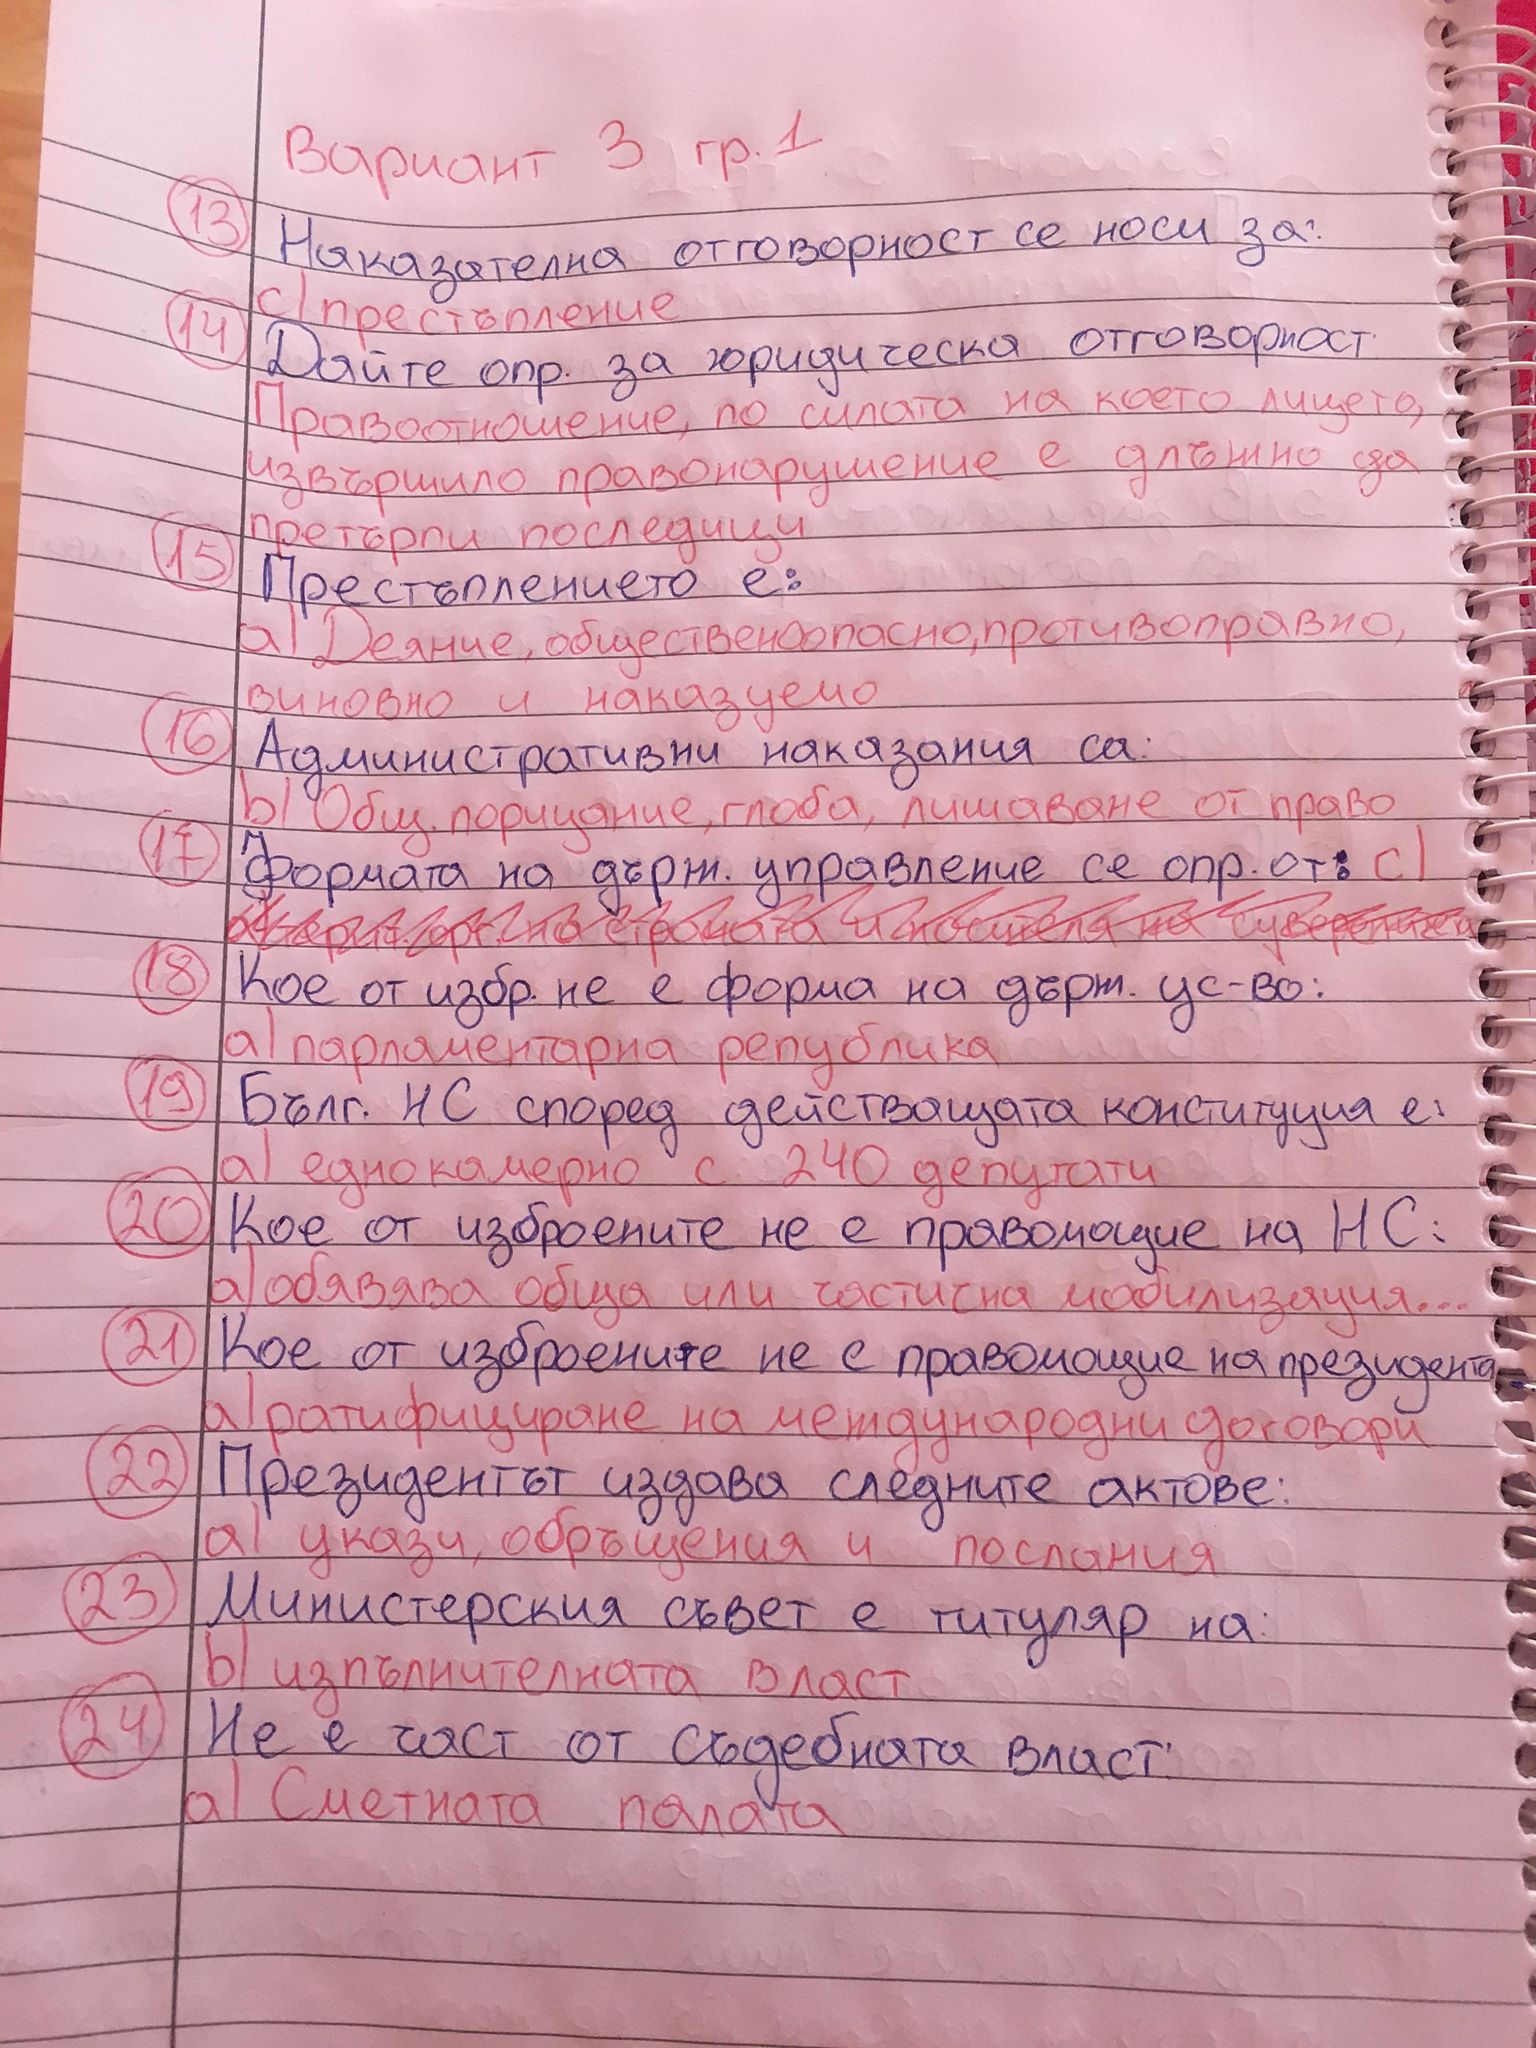 Вариант 3 гр. 1
13 Наказателна отговорност се носи за:
c) престъпление
14 Дайте опр. за юридическа отговорност
Правоотношение, по силата на което лицето,
извършило правонарушение е длъжно да
претърпи последици
15 Престъплението е:
a) Деяние, общественоопасно, противоправно,
виновно и наказуемо
16 Административни наказания са:
b) Общ. порицание, глоба, лишаване от право
17 Формата на държ. управление се опр. от: c)
на страната и носителя на суверенитета
18 Кое от избр. не е форма на държ. ус-во:
a) парламентарна република
19 Бълг. НС според действащата конституция е:
a) еднокамерно с 240 депутати
20 Кое от изброените не е правомощие на НС:
a) обявява обща или частична мобилизация...
21 Кое от изброените не е правомощие на президента
a) ратифициране на международни договори
22 Президентът издава следните актове:
a) укази, обръщения и послания
23 Министерския съвет е титуляр на:
b) изпълнителната власт
24 Не е част от съдебната власт:
a) Сметната палата